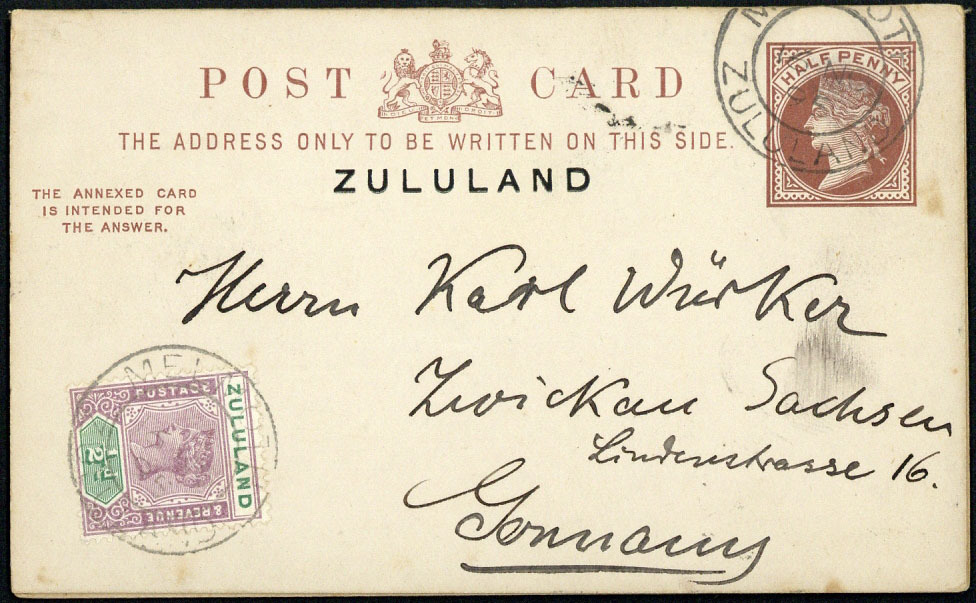 POST CARD
THE ADDRESS ONLY TO BE WRITTEN ON THIS SIDE.
ZULULAND
THE ANNEXED CARD
IS INTENDED FOR
THE ANSWER.
HALF PENNY
ZULULAND
Herrn Karl Würker
Zwickau Sachsen
Lindenstrasse 16.
Germany
POSTAGE
& REVENUE
ZULULAND
1/2 d